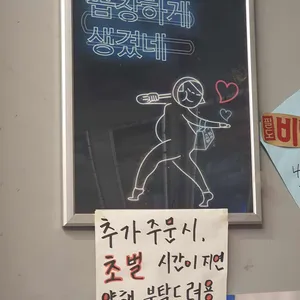 곱창하게
생겼네
비
4
추가 주문시,
초벌 시간이 지연
양해 부탁드려용